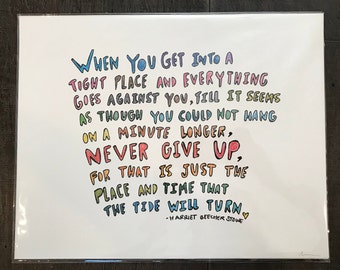 WHEN YOU GET INTO A
TIGHT PLACE AND EVERYTHING
GOES AGAINST YOU, TILL IT SEEMS
AS THOUGH YOU COULD NOT HANG
ON A MINUTE LONGER,
NEVER GIVE UP,
FOR THAT IS JUST THE
PLACE AND TIME THAT
THE TIDE WILL TURN.
-HARRIET BEECHER STOWE